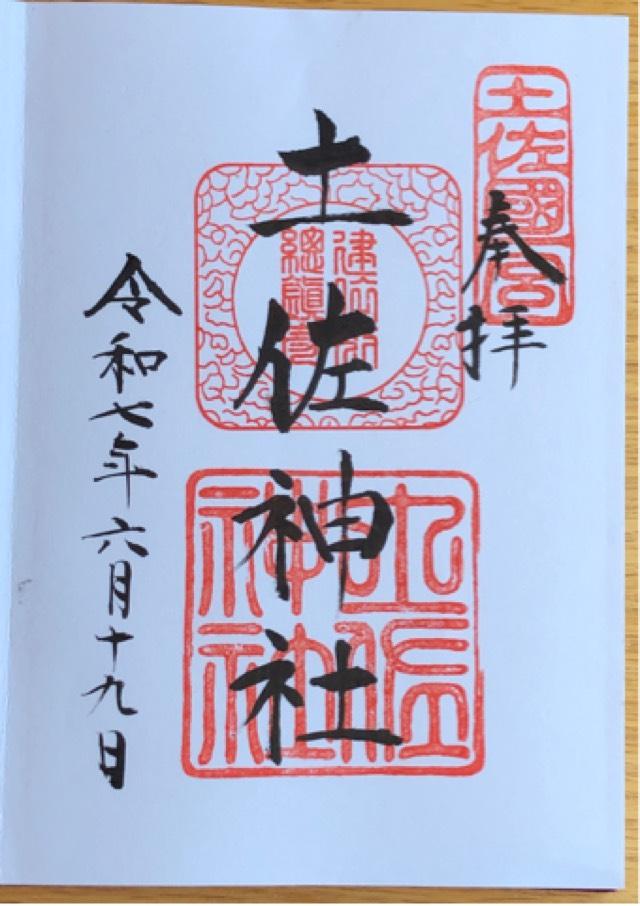 土佐國一宮
奉拝
土佐神社
建依別
總鎮守
土佐
神社
令和七年六月十九日